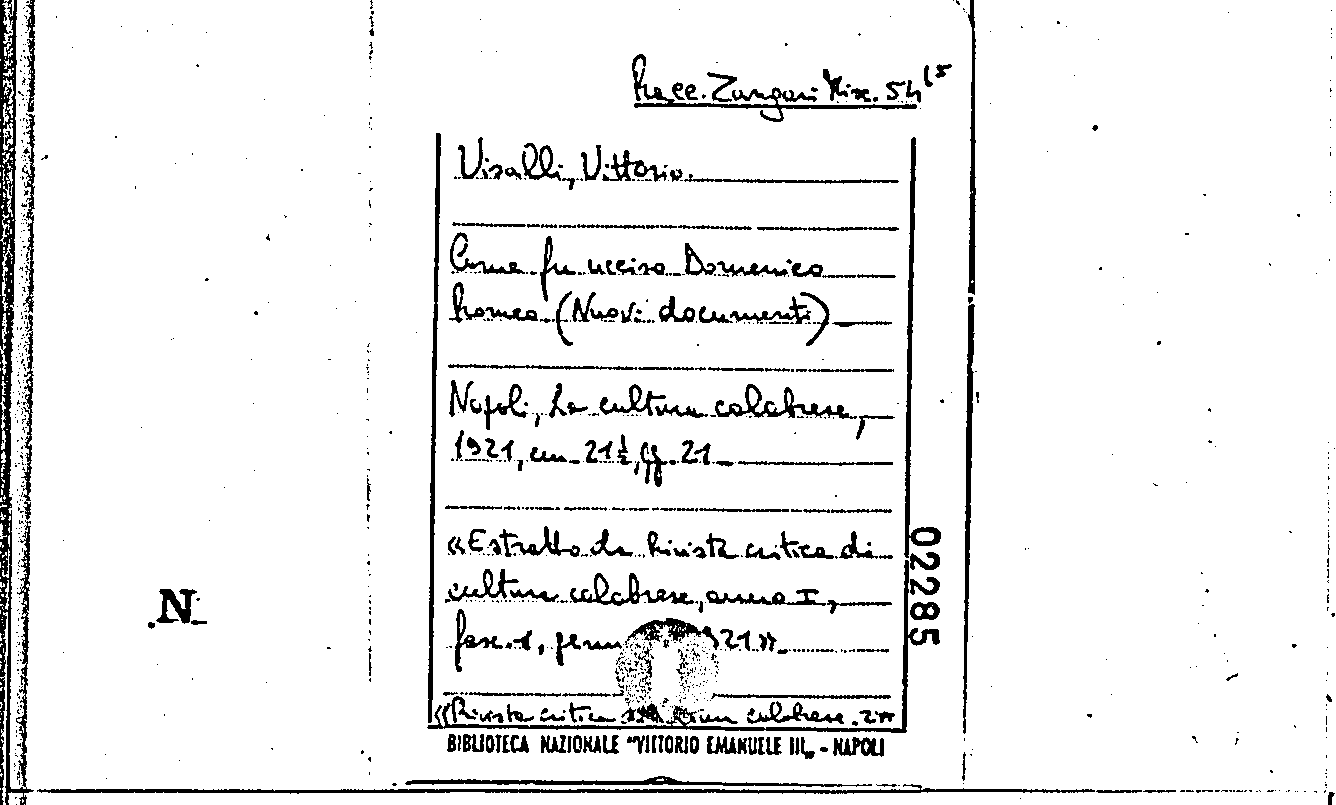 Racc. Zangari Misc. 54 15
Visalli, Vittorio.
Come fu ucciso Domenico
Romeo (Nuovi documenti)
Napoli, La cultura calabrese,
1921, cm. 21½, pp. 21
«Estratto da Rivista critica di
cultura calabrese, anno I,
fasc. 1, 1921».
«Rivista critica calabrese. 2»
BIBLIOTECA NAZIONALE "VITTORIO EMANUELE III„ - NAPOLI
02285
N